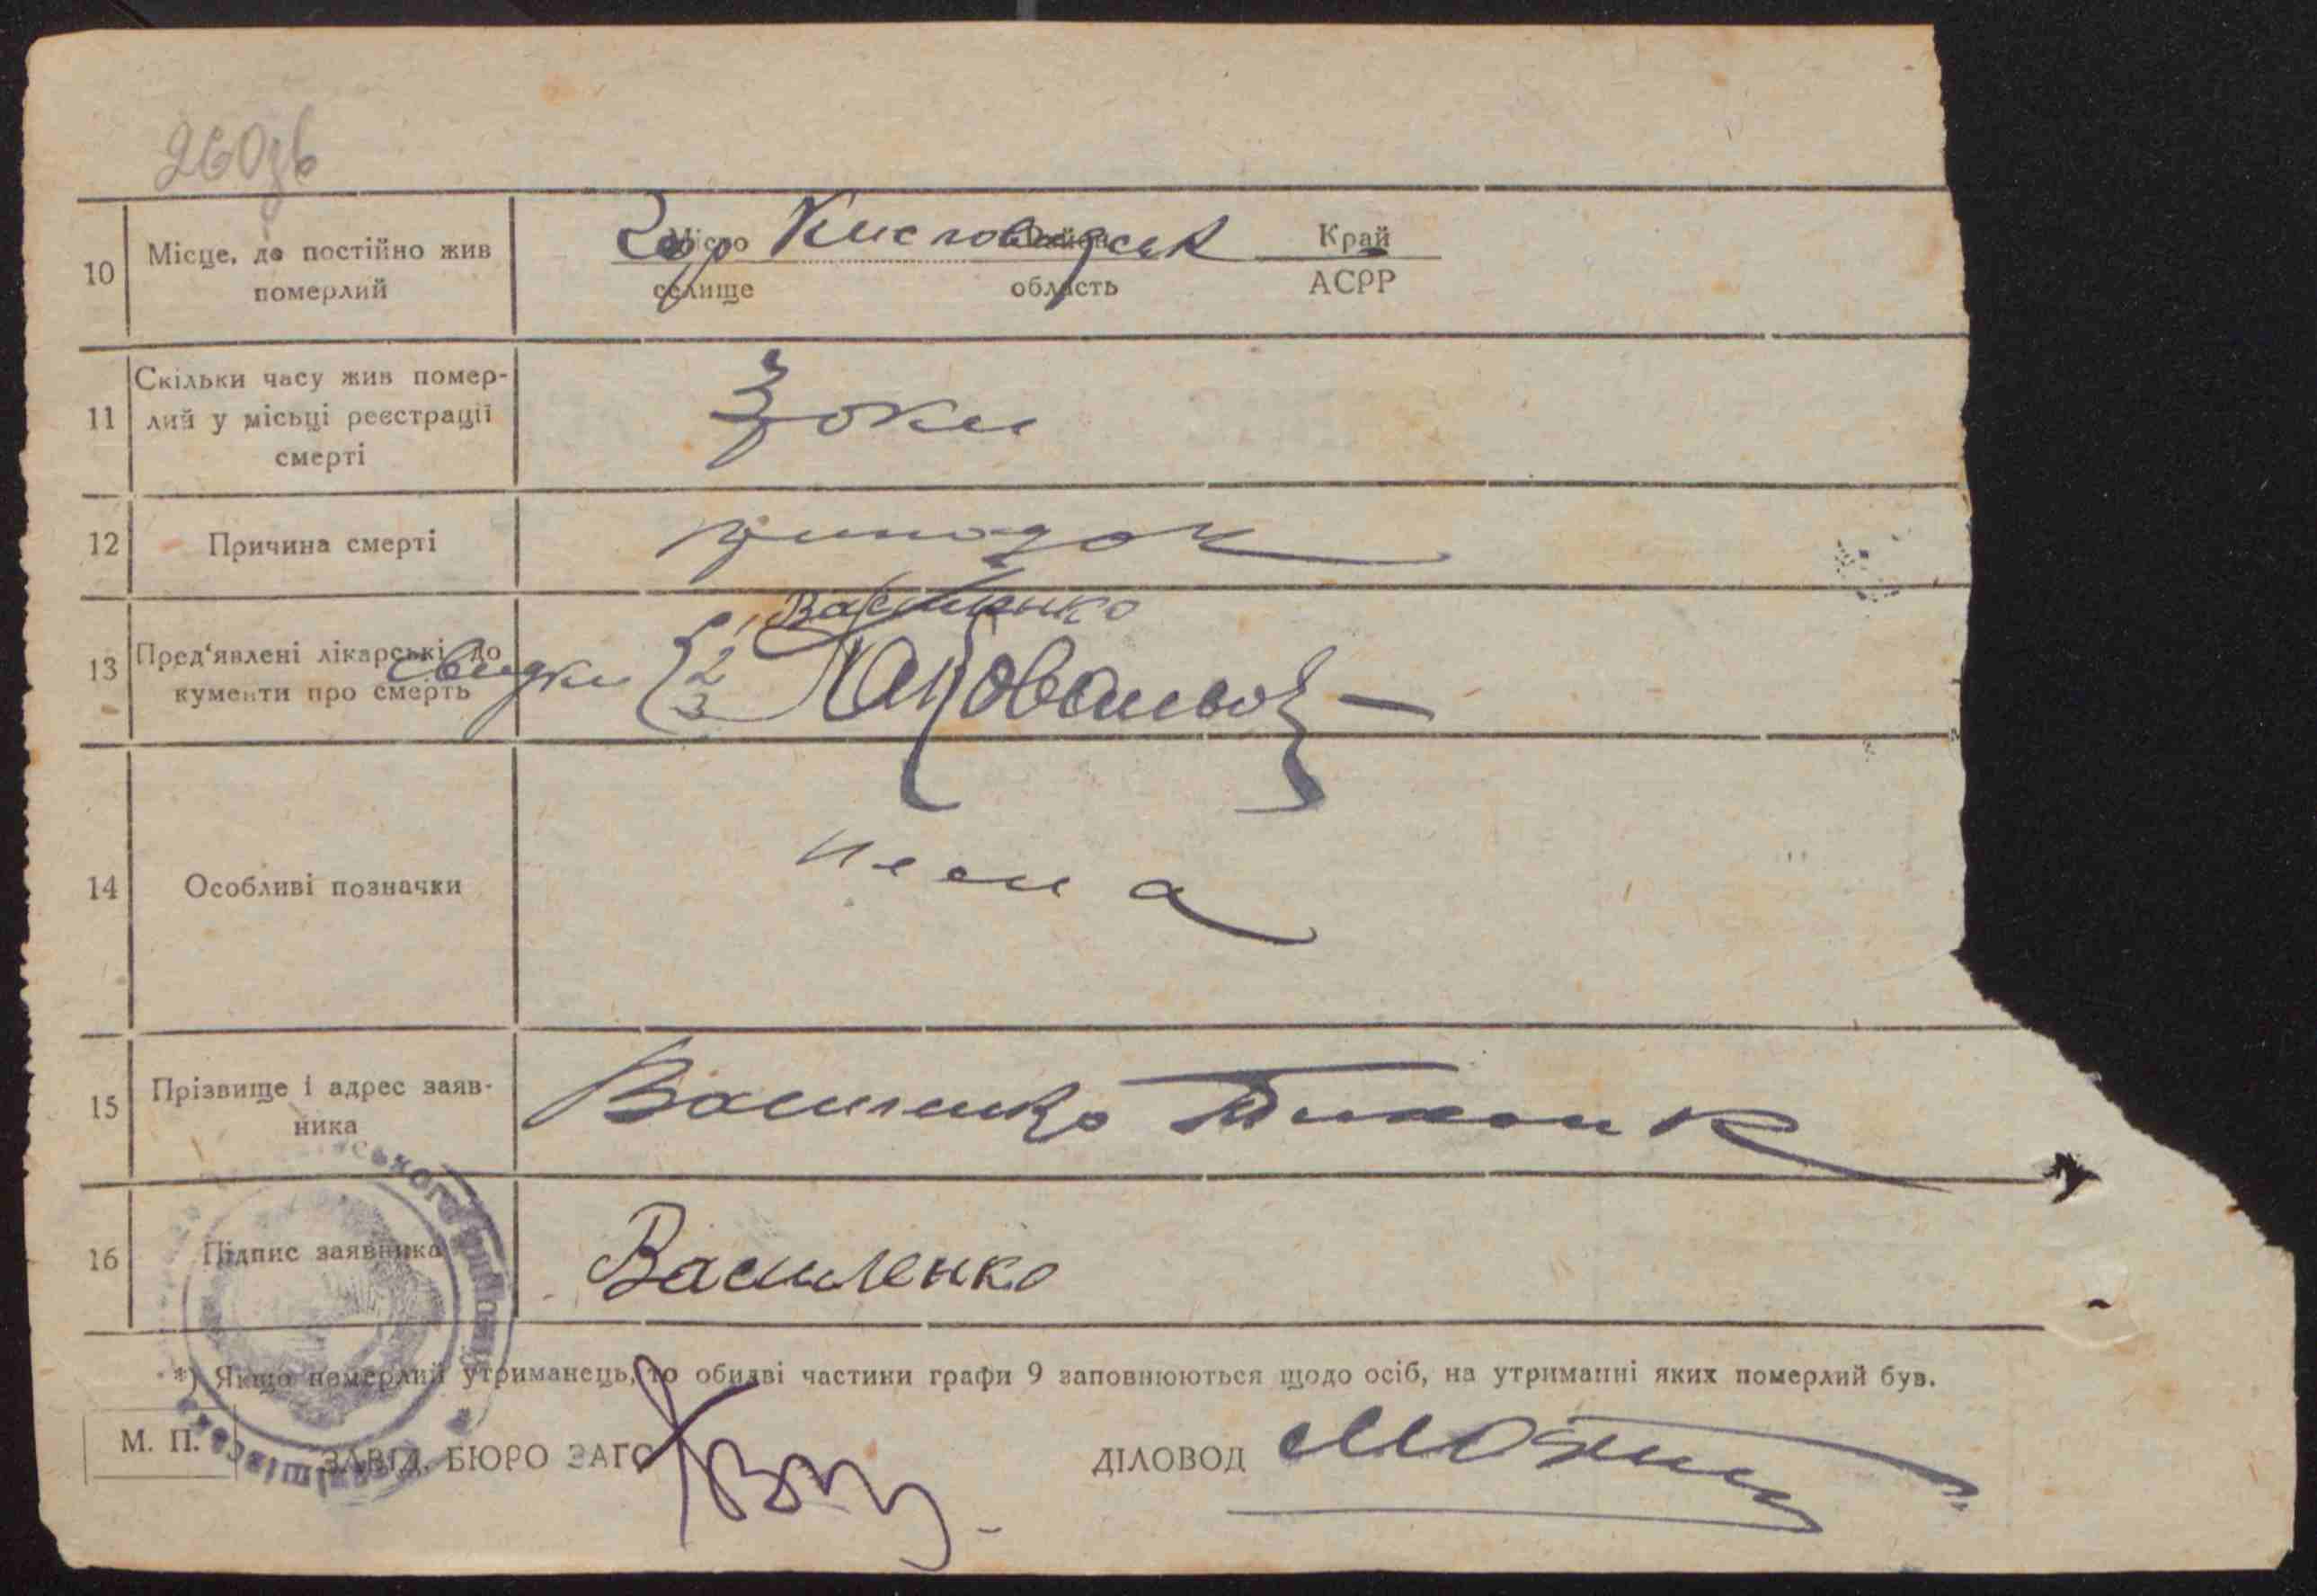 260зв
10 Місце, де постійно жив померлий
гор Кисловодськ
Місто Район Край
селище область АСРР
11 Скільки часу жив помер-
лий у місьці реєстрації
смерті
3 роки
12 Причина смерті
припадок
13 Пред'явлені лікарські до
кументи про смерть
свидки 1 Василенко
2
3
14 Особливі позначки
нема
15 Прізвище і адрес заяв-
ника
Василенко
16 Підпис заявника
Василенко
*) Якщо померлий утриманець, то обидві частини графи 9 заповнюються щодо осіб, на утриманні яких померлий був.
М. П.
ЗАВІД. БЮРО ЗАГС
ДІЛОВОД